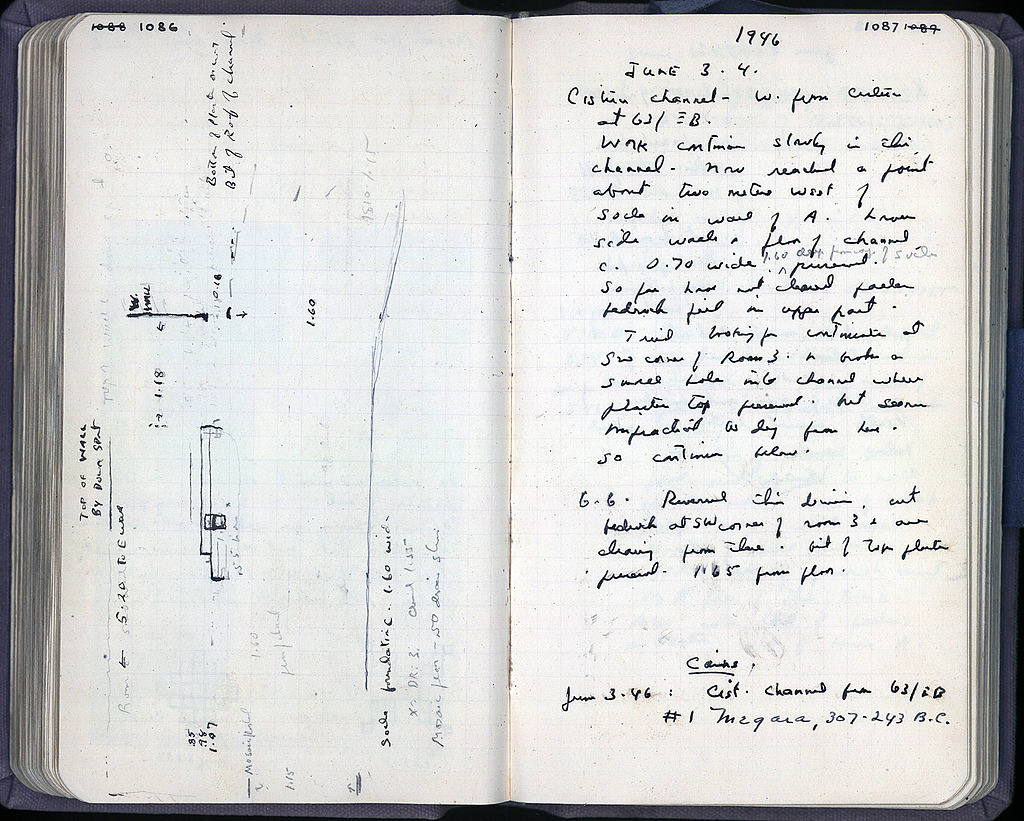 1088 1086
Bottom of
Bit of Roof of channel
W.
WALL
10.18
1.60
1.18
TOP OF WALL
BY DOWN SPOUT
5.20 to E wall
Room
.55
1.60
35
.98
1.07
1.15
Socle foundation. 1.60 wide
x = DR: 3. 1.55
Mosaic floor - 50
1087 1089
1946
JUNE 3-4.
Cistern channel - W. from cistern
at 63/ΞB.
Work continues slowly in this
channel. Now reached a point
about two metres west of
socle in wall of A. Lower
side walls & floor of channel
c. 0.70 wide preserved.
1.60 deep of socle
So far have not cleared fallen
bedrock fill in upper part.
Tried looking for continuation at
SW corner of Room 3. & broke a
small hole into channel where
plaster top preserved. but seems
impractical to dig from here.
so continue below.
6-6. this drain, cut
bedrock at SW corner of room 3 & are
clearing from there. Bit of top plaster
preserved. 1.65 from floor.
Coins.
June 3-46: Cist. channel from 63/ΞB
#1 Megara, 307-243 B.C.